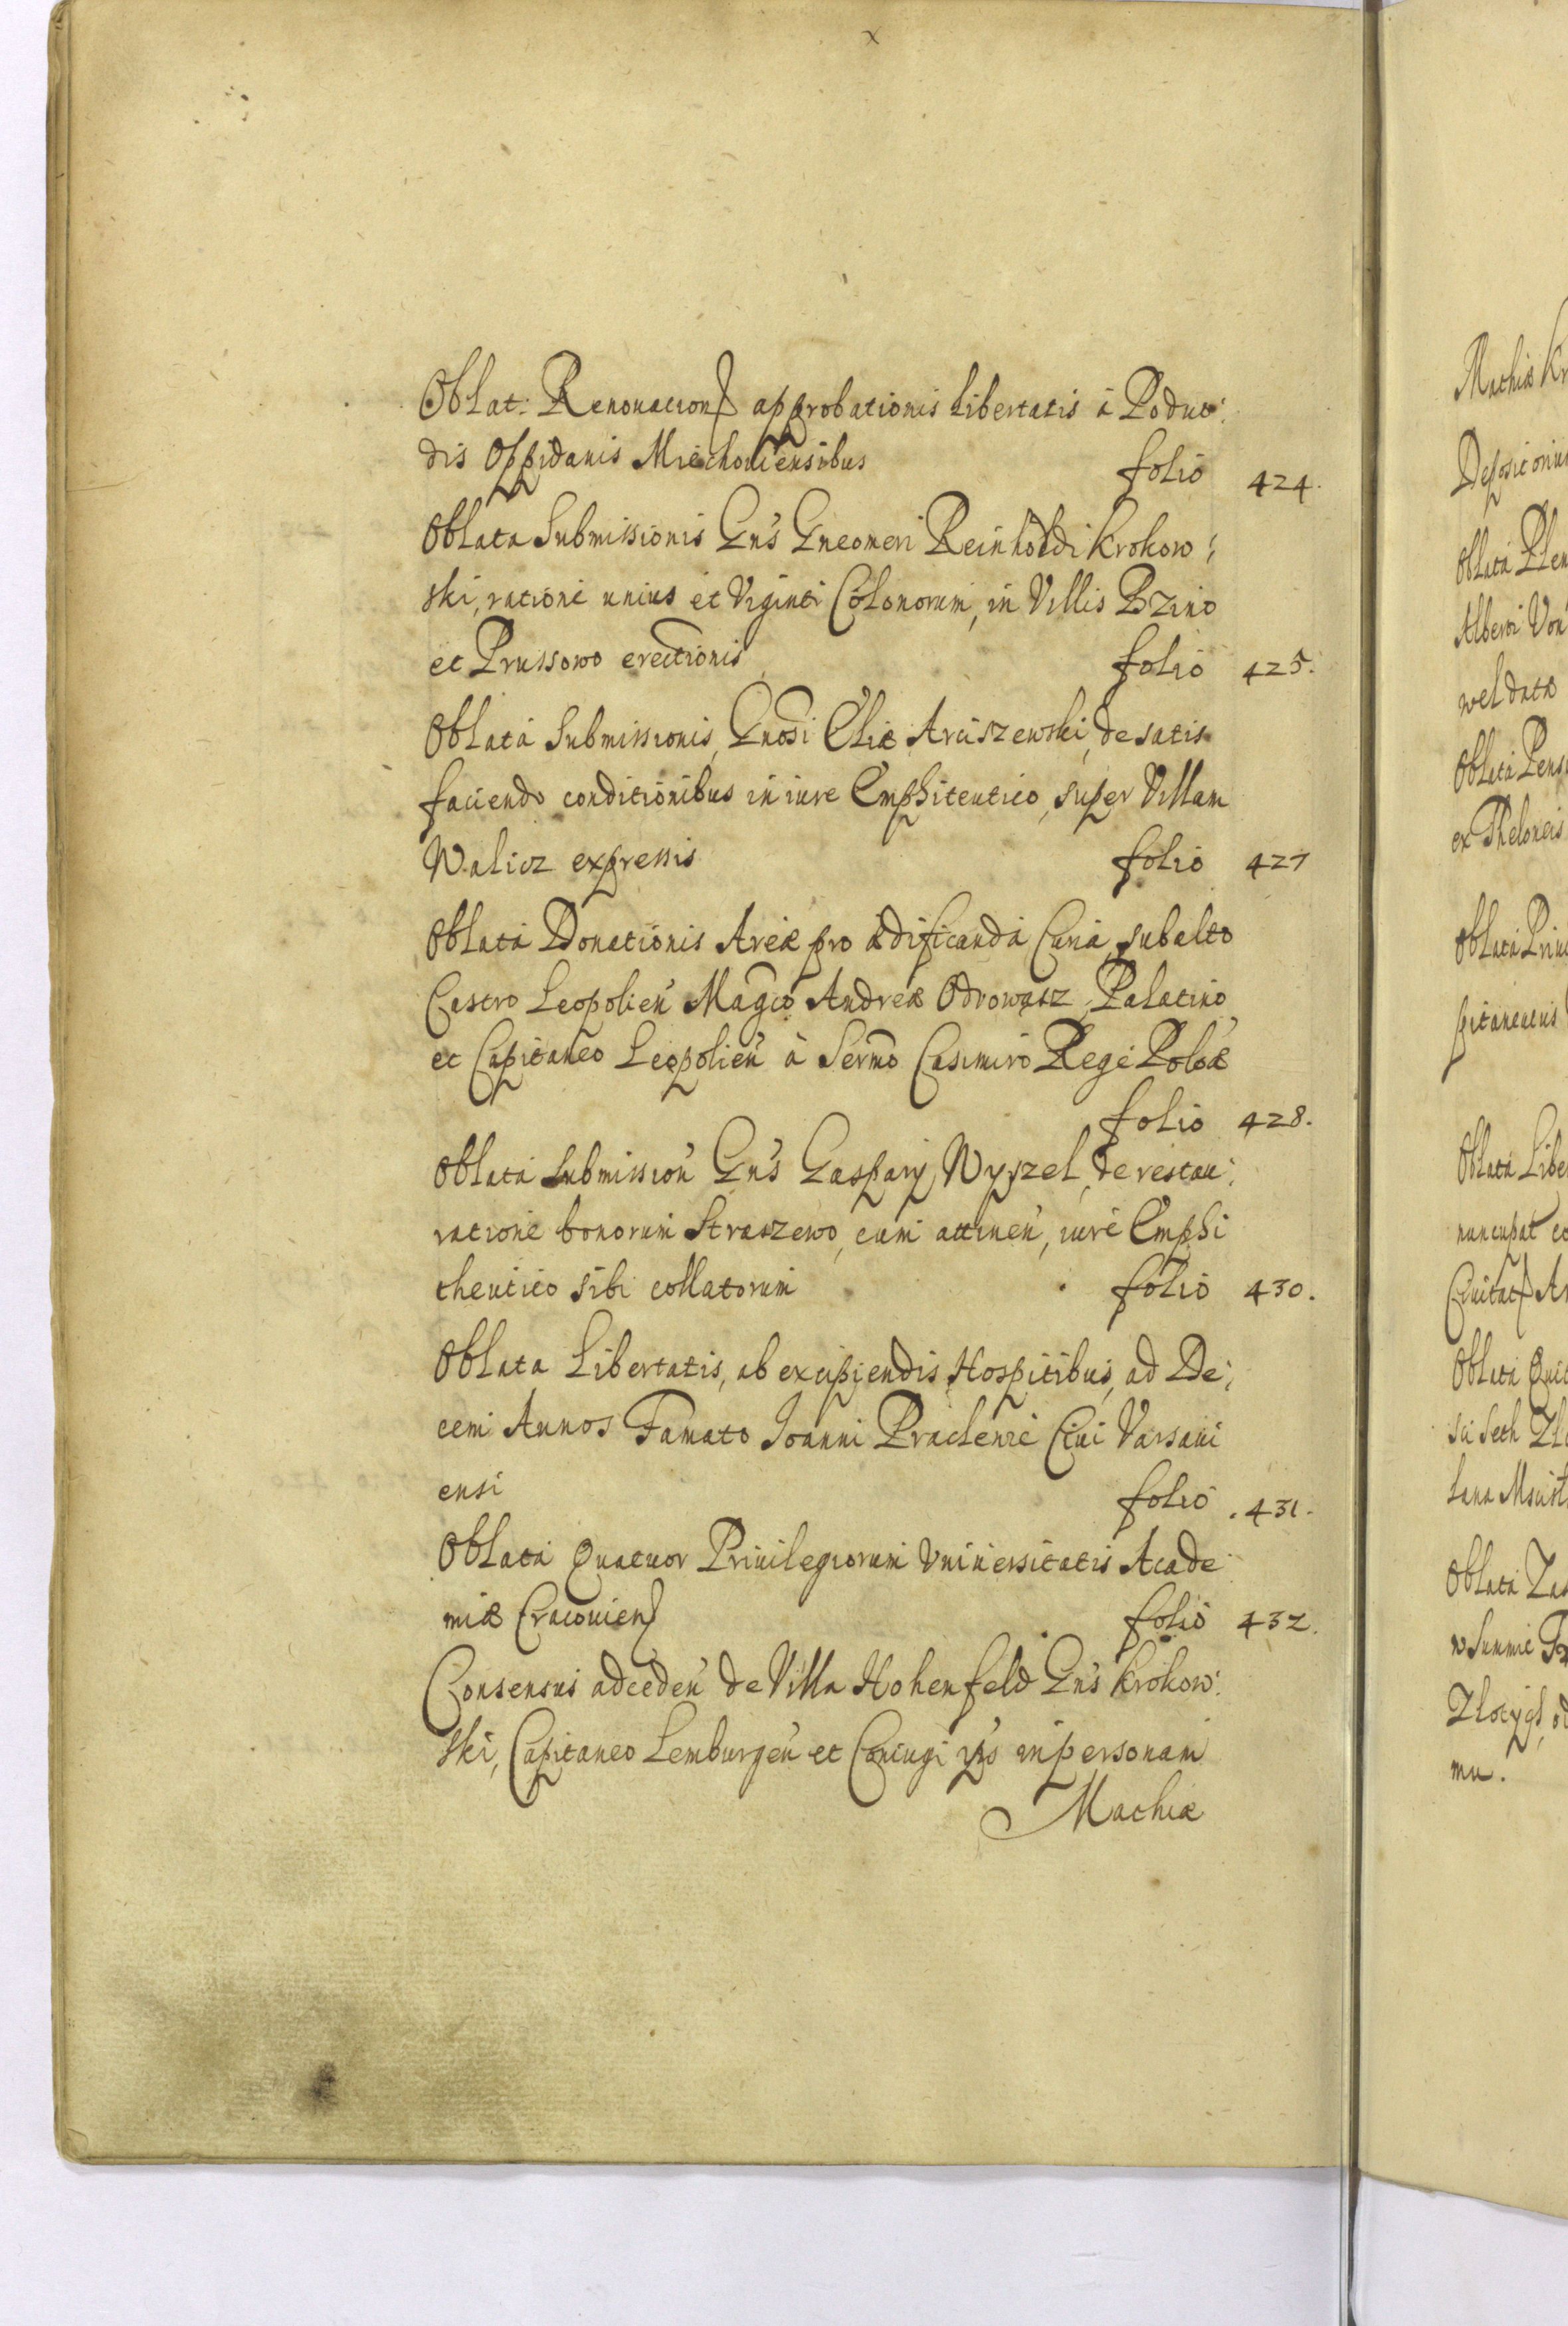 x
Oblat: Renouation approbationis libertatis à Poduo:
dis Oppidanis Miechouiensibus folio 424.
Oblata Submissionis Gn's Gneomeri Reinholdi Krokow:
ski, ratione unius et Viginti Colonorum, in Villis Bzino
et Prussowo erectionis folio 425.
Oblata Submissionis, Gnosi Eliæ Arciszewski, de satis
faciendo conditionibus in iure Emphiteutico, super Villam
Walicz expressis folio 427
Oblata Donationis Areæ pro ædificanda Curia, sub alto
Castro Leopolien Magco Andreæ Odrowąsz, Palatino
et Capitaneo Leopolien à Sermo Casimiro Rege Poloæ
folio 428.
Oblata submission Gn's Gaspary Wyzel, de restau:
ratione bonorum Straszewo, cum attinen, iure Emphi
theutico sibi collatorum folio 430.
Oblata Libertatis, ab excipiendis Hospitibus, ad De:
cem Annos Famato Joanni Praclenie Ciui Varsaui
ensi folio 431.
Oblata Quatuor Priuilegiorum Vniuersitatis Acade
miæ Cracouien folio 432.
Consensus ad ceden de Villa Hohenfeld Gn's Krokow:
ski, Capitaneo Lemburgen et Coniugi ips in personam
Mathiæ
Mathiæ
Oblata
Alberti Von
wel data
Oblata
ex Theloneis
Oblata
pitaneatus
Oblata
nuncupat
Ciuitat
Oblata
Oblata
w Summie
Zlotych
mu.